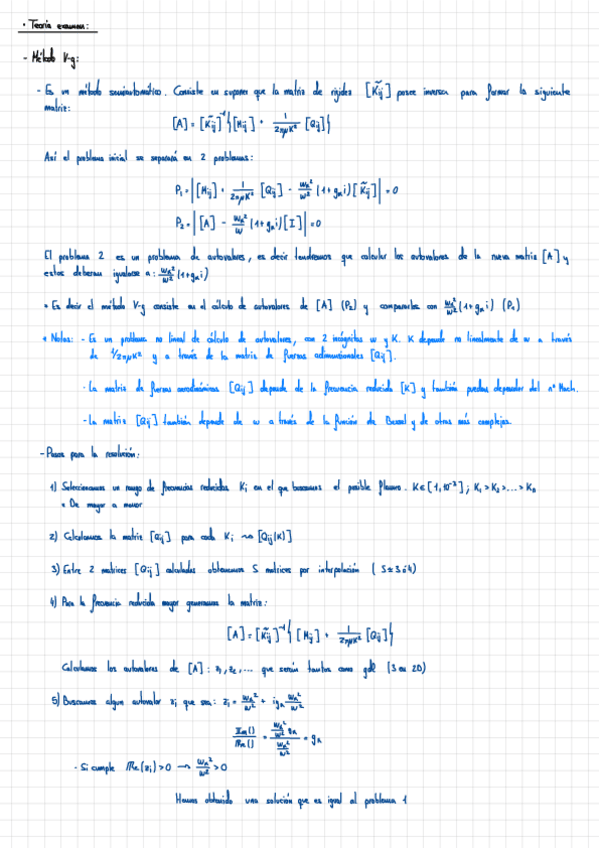 · Teoría examen:
- Método V-g:
- Es un método semiautomático. Consiste en suponer que la matriz de rigidez [K̃ij] posee inversa para formar la siguiente
matriz:
[A] = [K̃ij]⁻¹ {[Mij] + 1/2πμK² [Qij]}
Así el problema inicial se separará en 2 problemas:
P₁ = |[Mij] + 1/2πμK² [Qij] - wα²/w² (1+gαi)[K̃ij]| = 0
P₂ = |[A] - wα²/w (1+gαi)[I]| = 0
El problema 2 es un problema de autovalores, es decir tendremos que calcular los autovalores de la nueva matriz [A] y
estos deberan igualarse a: wα²/w² (1+gαi)
* Es decir el método V-g consiste en el cálculo de autovalores de [A] (P₂) y compararlos con wα²/w² (1+gαi) (P₁)
* Notas: - Es un problema no lineal de cálculo de autovalores, con 2 incógnitas w y K. K depende no linealmente de w a través
de 1/2πμK² y a través de la matriz de fuerzas adimensionales [Qij].
- La matriz de fuerzas aerodinámicas [Qij] depende de la frecuencia reducida [K] y también puede depender del nº Mach.
- La matriz [Qij] también depende de w a través de la función de Bessel y de otras más complejas.
- Pasos para la resolución:
1) Seleccionamos un rango de frecuencias reducidas Ki en el que buscamos el posible flameo. K∈[1,10⁻³] ; K₁ > K₂ > ... > Kn
* De mayor a menor
2) Calculamos la matriz [Qij] para cada Ki ⇝ [Qij(K)]
3) Entre 2 matrices [Qij] calculadas obtenemos S matrices por interpolación ( S≈3 ó 4)
4) Para la frecuencia reducida mayor generamos la matriz:
[A] = [K̃ij]⁻¹ {[Mij] + 1/2πμK² [Qij]}
Calculamos los autovalores de [A] : z₁, z₂, ... que serán tantos como gdl (3 en 2D)
5) Buscamos algun autovalor zj que sea: zj = wα²/w² + igα wα²/w²
Im()/Re() = (wα²/w² gα)/(wα²/w²) = gα
- Si cumple Re(zj) > 0 ⟶ wα²/w² > 0
Hemos obtenido una solución que es igual al problema 1